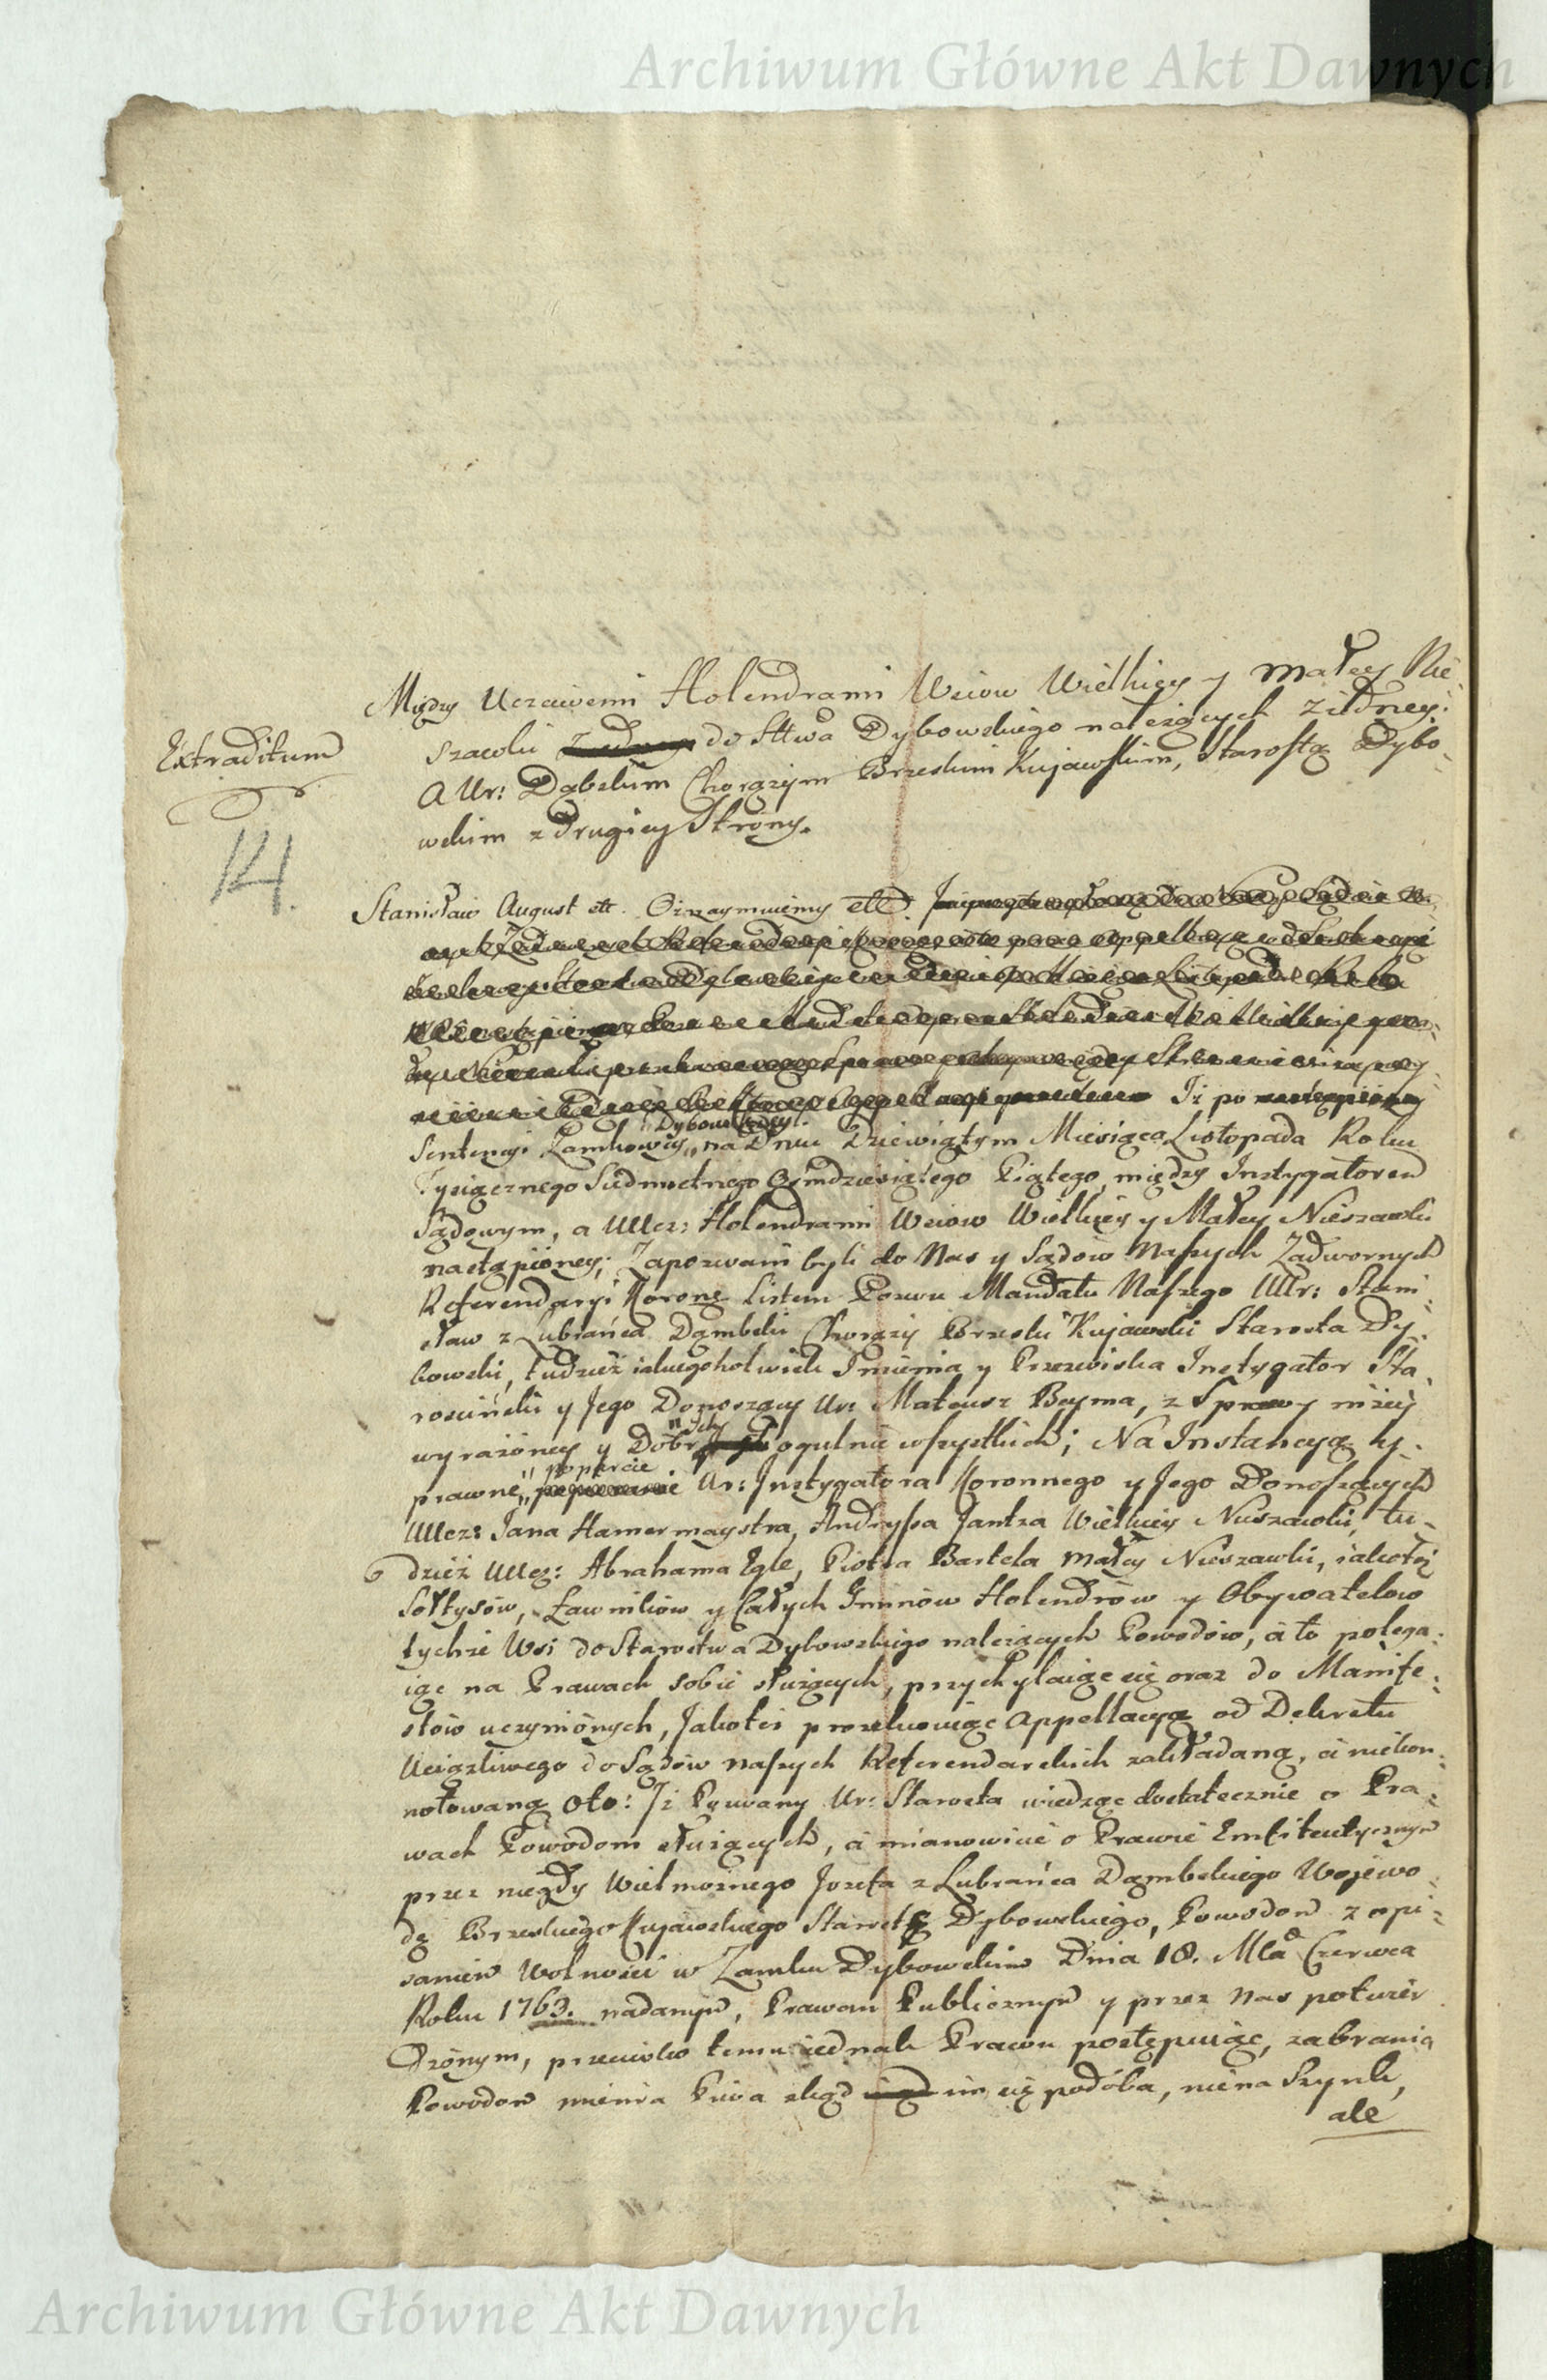 Archiwum Główne Akt Dawnych
Między Uczciwemi Holendrami Wsiow Wielkiey y Małey Nie-
szawki do Sttwa Dybowskiego należących z iedney:
Extraditum
A Ur: Dąbskim Chorążym Brzeskim Kujawskim, Starostą Dybo-
wskim z drugiey Strony.
14.
Stanisław August ett. Oznaymuiemy ett.
Iż po
Dybowskiey
Sentencyi Zamkowey, na Dniu Dziewiątym Miesiąca Listopada Roku
Tysiącznego Siedmsetnego Osmdziesiątego Piątego, między Instygatorem
Sądowym, a UUcz: Holendrami Wsiow Wielkiey y Małey Nieszawki
nastąpioney; Zapozwani byli do Nas y Sądow Naszych Zadwornych
Referendaryi Koronę Listem Pozwu Mandatu Naszego Ur: Stani-
sław z Lubrańca Dąmbski Chorąży Brzeski Kujawski Starosta Dy-
bowski, tudzież iakiegożkolwiek Imienia y Przezwiska Instygator Sta-
rościński y Jego Donoszący Ur: Mateusz Beyma, z Sprawy niżey
Ich
wyrażoney y Dobr ogulnie wszystkich; Na Instancyą y
poparcie
prawne Ur: Instygatora Koronnego y Jego Donoszących
UUcz: Jana Hamermaystra, Andrysa Jantza Wielkiey Nieszawki, tu-
dzież UUcz: Abrahama Egle, Piotra Bartela Małey Nieszawki, iakoteż
Sołtysów, Ławników y Całych Gminów Holendrów y Obywatelow
tychże Wsi do Starostwa Dybowskiego należących Powodów, a to polega-
iąc na Prawach sobie służących, przychylaiąc się oraz do Manife-
stów uczynionych, Jakoteż prosekwuiąc Appellacyą od Dekretu
Uciążliwego do Sądów Naszych Referendarskich zakładaną, a niekon-
notowaną Oto: Iż Pozwany Ur: Starosta wiedząc dostatecznie o Pra-
wach Powodom służących, a mianowicie o Prawie Emfiteutycznym
przez niegdy Wielmożnego Jozefa z Lubrańca Dąmbskiego Wojewo-
dę Brzeskiego Kujawskiego Starostę Dybowskiego, Powodom z opi-
saniem Wolności w Zamku Dybowskim Dnia 18. Mca Czerwca
Roku 1763. nadanym, Prawem Publicznym y przez Nas potwier-
dzonym, przeciwko temu iednak Prawu postępuiąc, zabrania
Powodom mienia Piwa zkąd im się podoba, nie na Szynk,
ale
Archiwum Główne Akt Dawnych